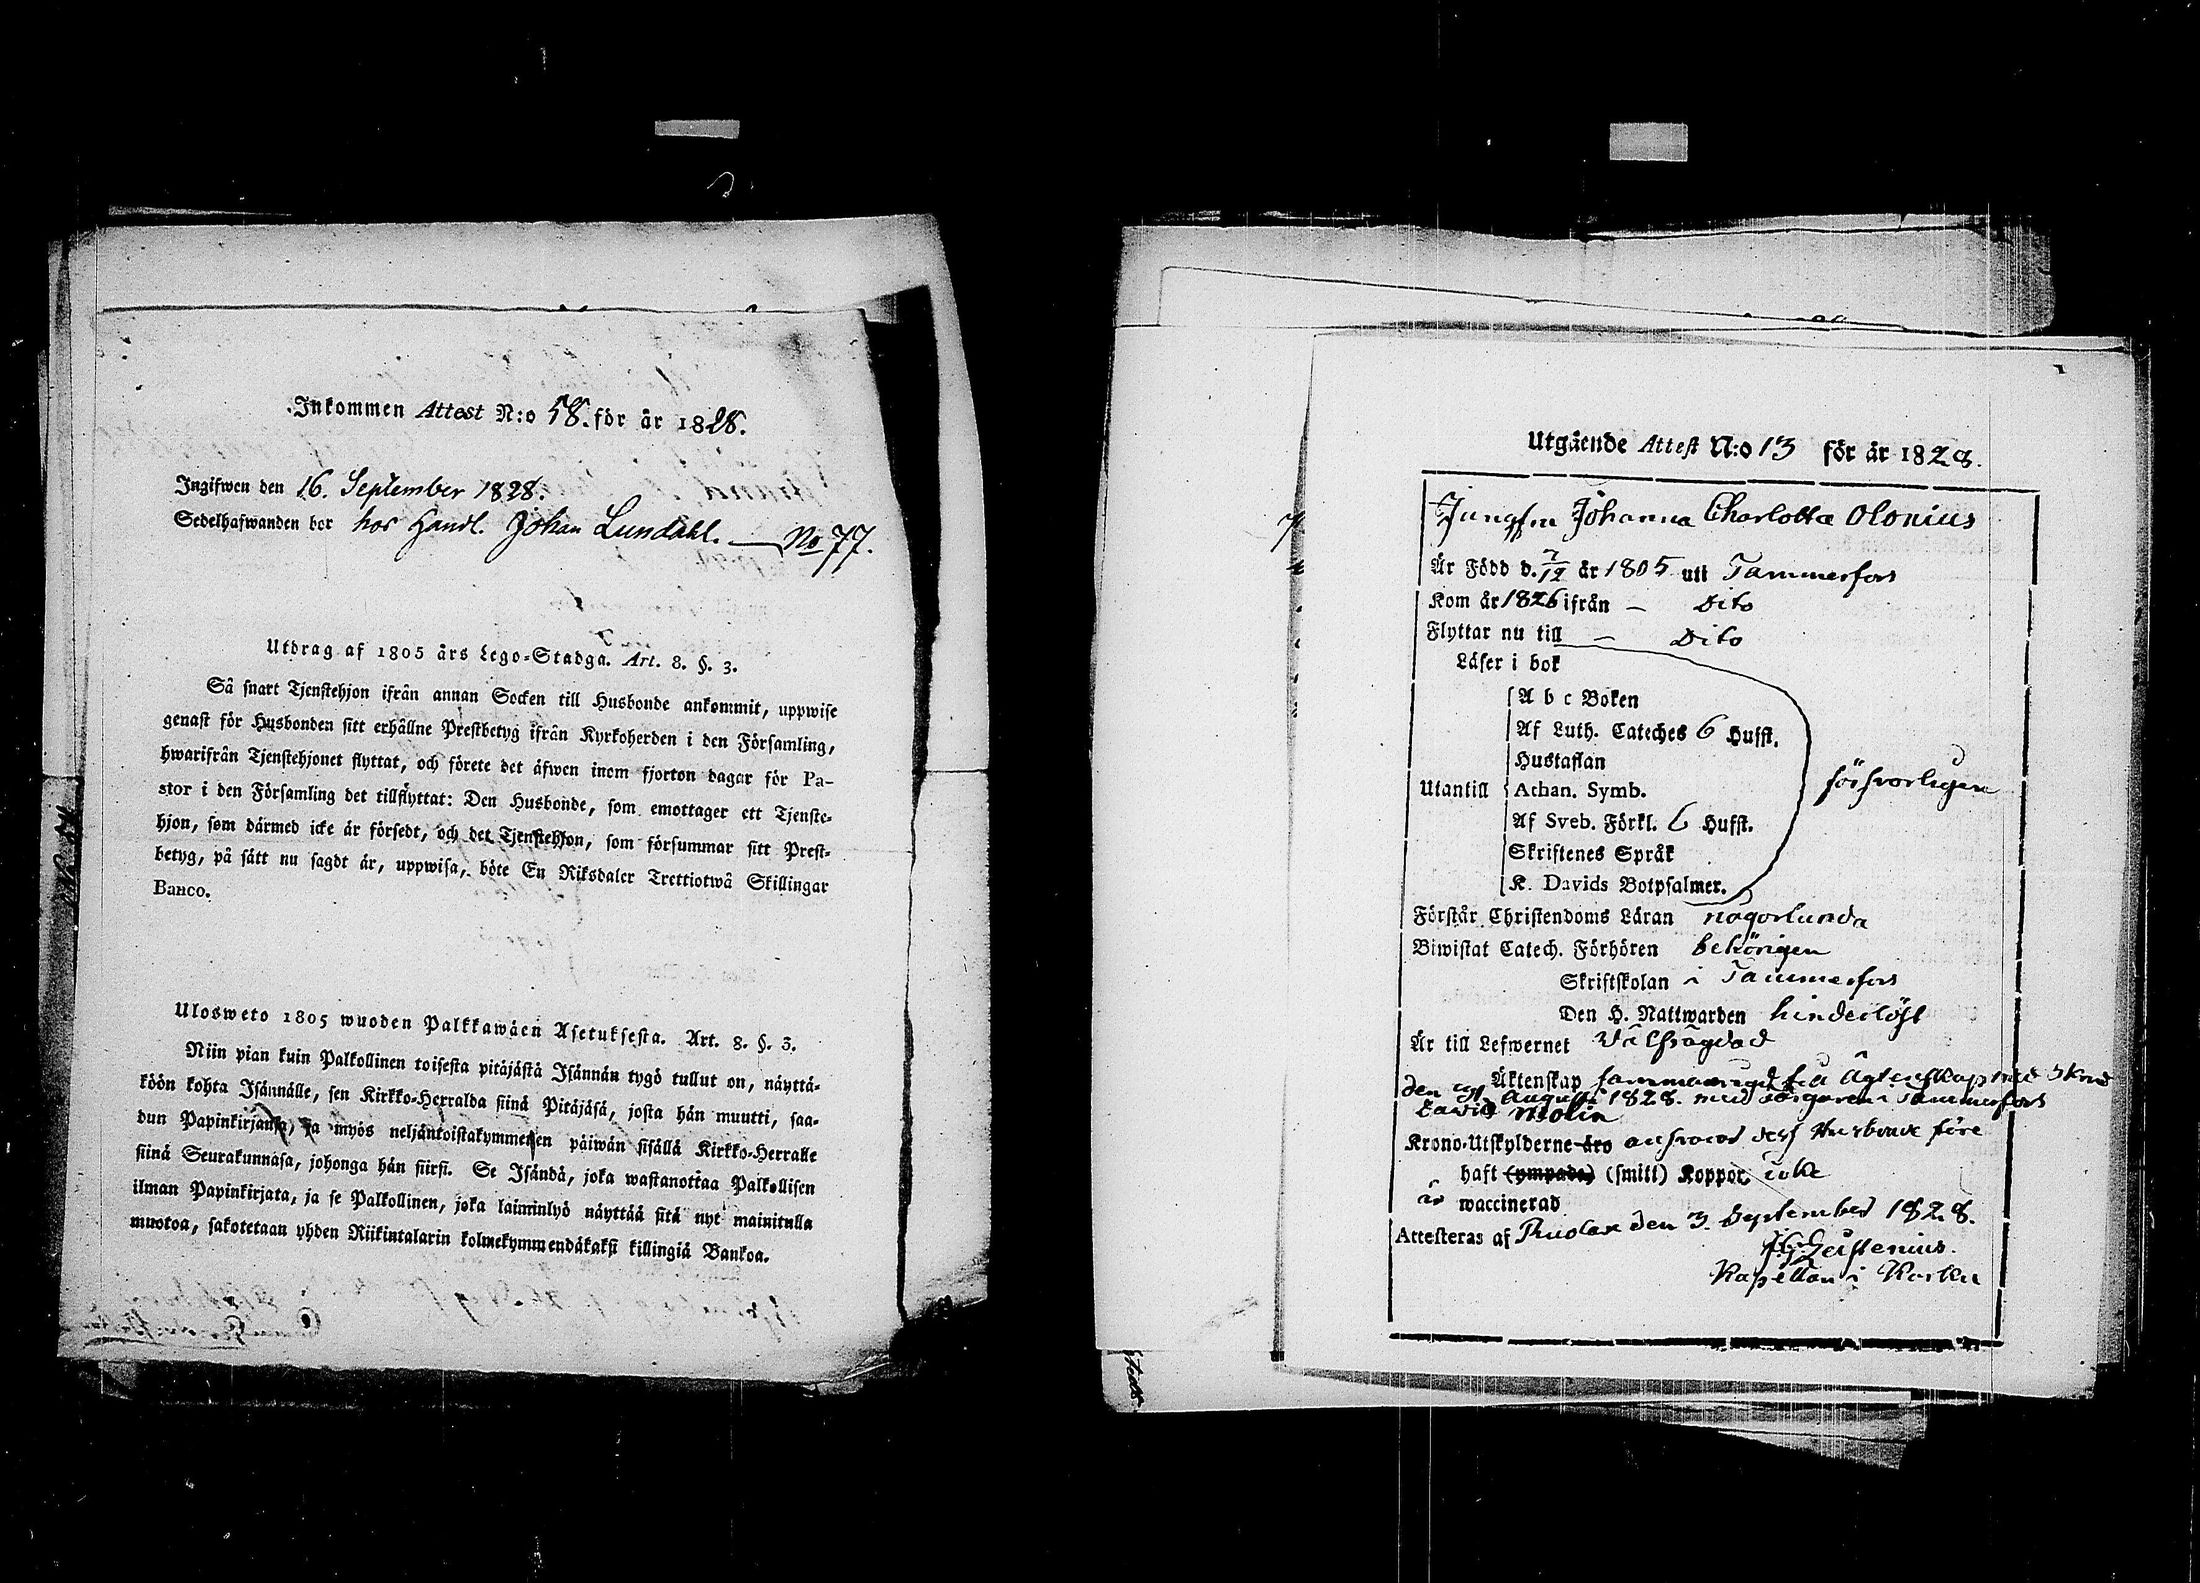 Inkommen Attest N:o 58. för år 1828.
Ingifwen den 16. September 1828.
Sedelhafwanden bor hos Handl. Johan Lundahl. — No 77.
Utdrag af 1805 års Lego-Stadga. Art. 8. §. 3.
Så snart Tjenstehjon ifrån annan Socken till Husbonde ankommit, uppwise
genast för Husbonden sitt erhållne Prestbetyg ifrån Kyrkoherden i den Församling,
hwarifrån Tjenstehjonet flyttat, och förete det äfwen inom fjorton dagar för Pa-
stor i den Församling det tillflyttat: Den Husbonde, som emottager ett Tjenste-
hjon, som därmed icke är försedt, och det Tjenstehjon, som försummar sitt Prest-
betyg, på sätt nu sagdt är, uppwisa, böte En Riksdaler Trettiotwå Skillingar
Banco.
Ulosweto 1805 wuoden Palkkawäen Asetuksesta. Art. 8. §. 3.
Niin pian kuin Palkollinen toisesta pitäjästä Isännän tygö tullut on, näyttä-
köön kohta Isännälle, sen Kirkko-Herralda siinä Pitäjäsä, josta hän muutti, saa-
dun Papinkirjansa, ja myös neljäntoistakymmenen päiwän sisällä Kirkko-Herralle
siinä Seurakunnasa, johonga hän siirsi. Se Isändä, joka wastanottaa Palkollisen
ilman Papinkirjata, ja se Palkollinen, joka laiminlyö näyttää sitä nyt mainitulla
muotoa, sakotetaan yhden Riikintalarin kolmekymmendäkaksi killingiä Bankoa.
Utgående Attest N:o 13 för år 1828.
Jungfru Johanna Charlotta Olonius
Är Född d. 7/12 år 1805 uti Tammerfors
Kom år 1826 ifrån — Dito
Flyttar nu till — Dito
Läser i bok
A b c Boken
Af Luth. Cateches 6 Hufst.
Hustaflan
Utantill Athan. Symb. försvarligen
Af Sveb. Förkl. 6 Hufst.
Skriftenes Språk
K. Davids Botpsalmer.
Förstår Christendoms Läran någorlunda
Biwistat Catech. Förhören behörigen
Skriftskolan i Tammerfors
Den H. Nattwarden hinderlöst
Är till Lefwernet Välfrägdad
Äktenskap till Ägtenskap med
den Augusti 1828. med i Tammerfors
David Molin
Krono-Utskylderne äro ansvarar dess Husbonde före
haft (ympade) (smitt) Koppor icke
är waccinerad
Attesteras af den 3 September 1828.
Kapellan i Karku